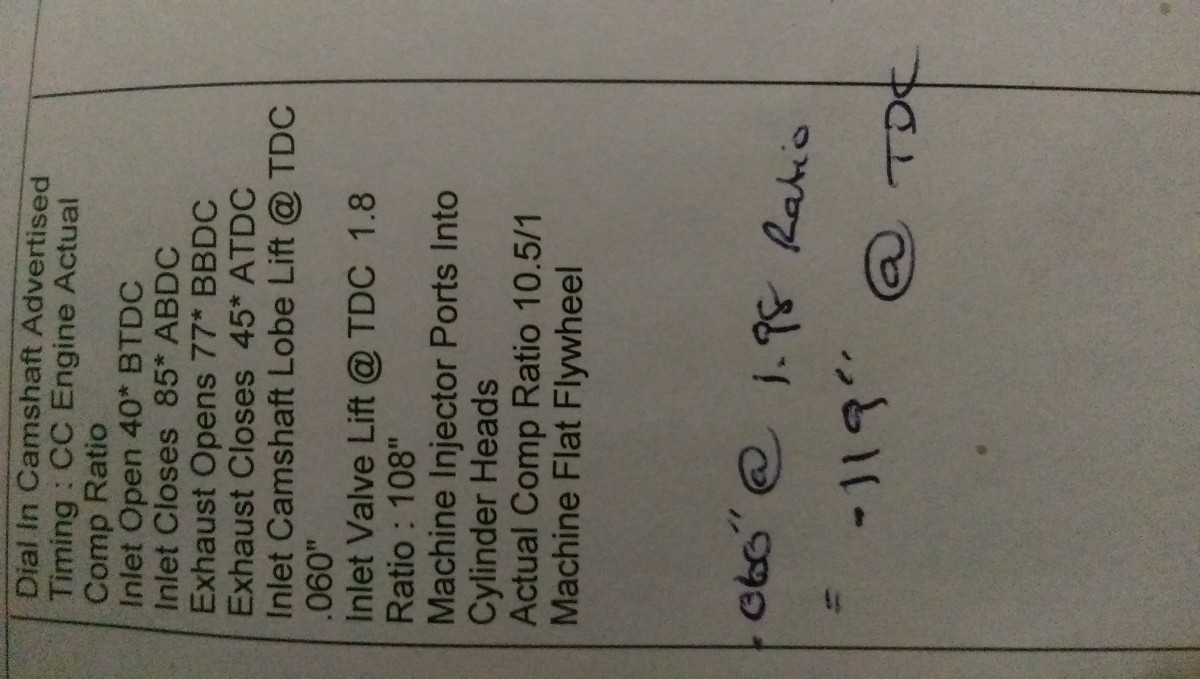 Dial In Camshaft Advertised
Timing : CC Engine Actual
Comp Ratio
Inlet Open 40* BTDC
Inlet Closes 85* ABDC
Exhaust Opens 77* BBDC
Exhaust Closes 45* ATDC
Inlet Camshaft Lobe Lift @ TDC
.060"
Inlet Valve Lift @ TDC 1.8
Ratio : 108"
Machine Injector Ports Into
Cylinder Heads
Actual Comp Ratio 10.5/1
Machine Flat Flywheel
@ 1.98 Ratio
= .119" @ TDC